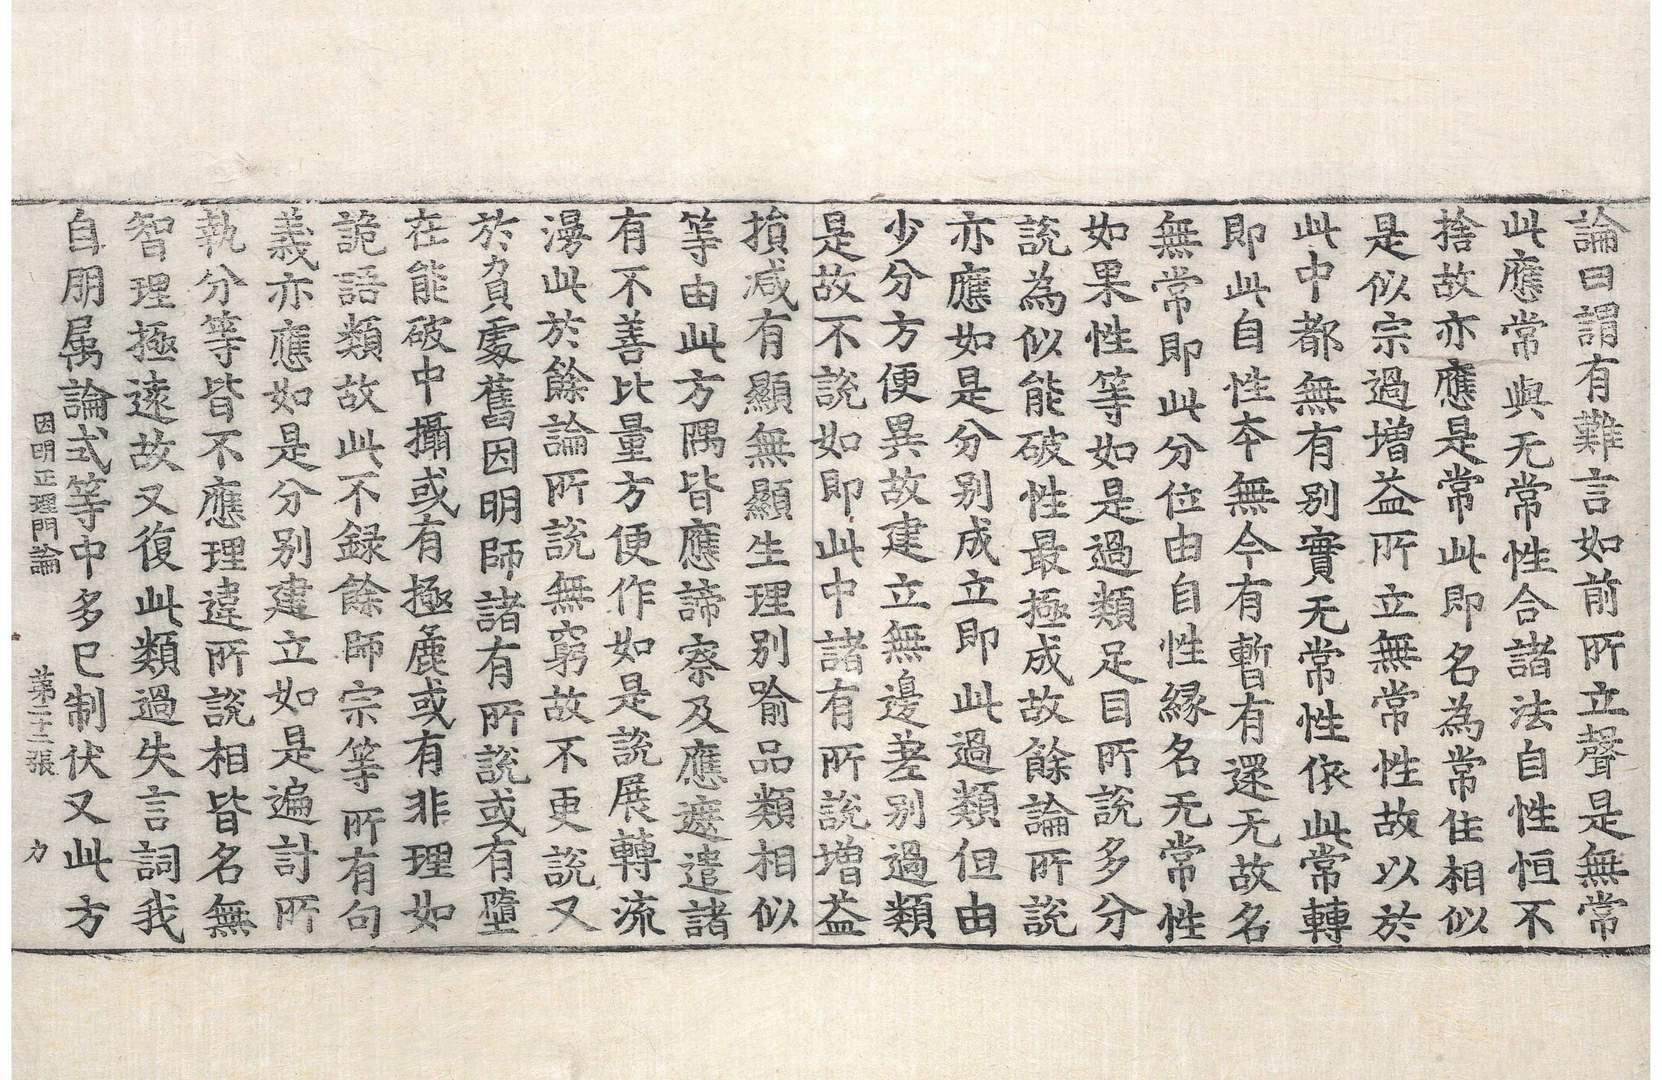 論曰謂有難言如前所立聲是無常
此應常與无常性合諸法自性恒不
捨故亦應是常此即名為常住相似
是似宗過增益所立無常性故以於
此中都無有別實无常性依此常轉
即此自性本無今有暫有還无故名
無常即此分位由自性縁名无常性
如果性等如是過類足目所說多分
說為似能破性最極成故餘論所說
亦應如是分別成立即此過類但由
少分方便異故建立無邊差別過類
是故不說如即此中諸有所說增益
損減有顯無顯生理別喻品類相似
等由此方隅皆應諦察及應遮遣諸
有不善比量方便作如是說展轉流
漫此於餘論所說無窮故不更說又
於負處舊因明師諸有所說或有墮
在能破中攝或有極麁或有非理如
詭語類故此不録餘師宗等所有句
義亦應如是分別建立如是遍計所
執分等皆不應理違所說相皆名無
智理極遠故又復此類過失言詞我
自朋属論式等中多已制伏又此方
因明正理門論　第二十二張　力